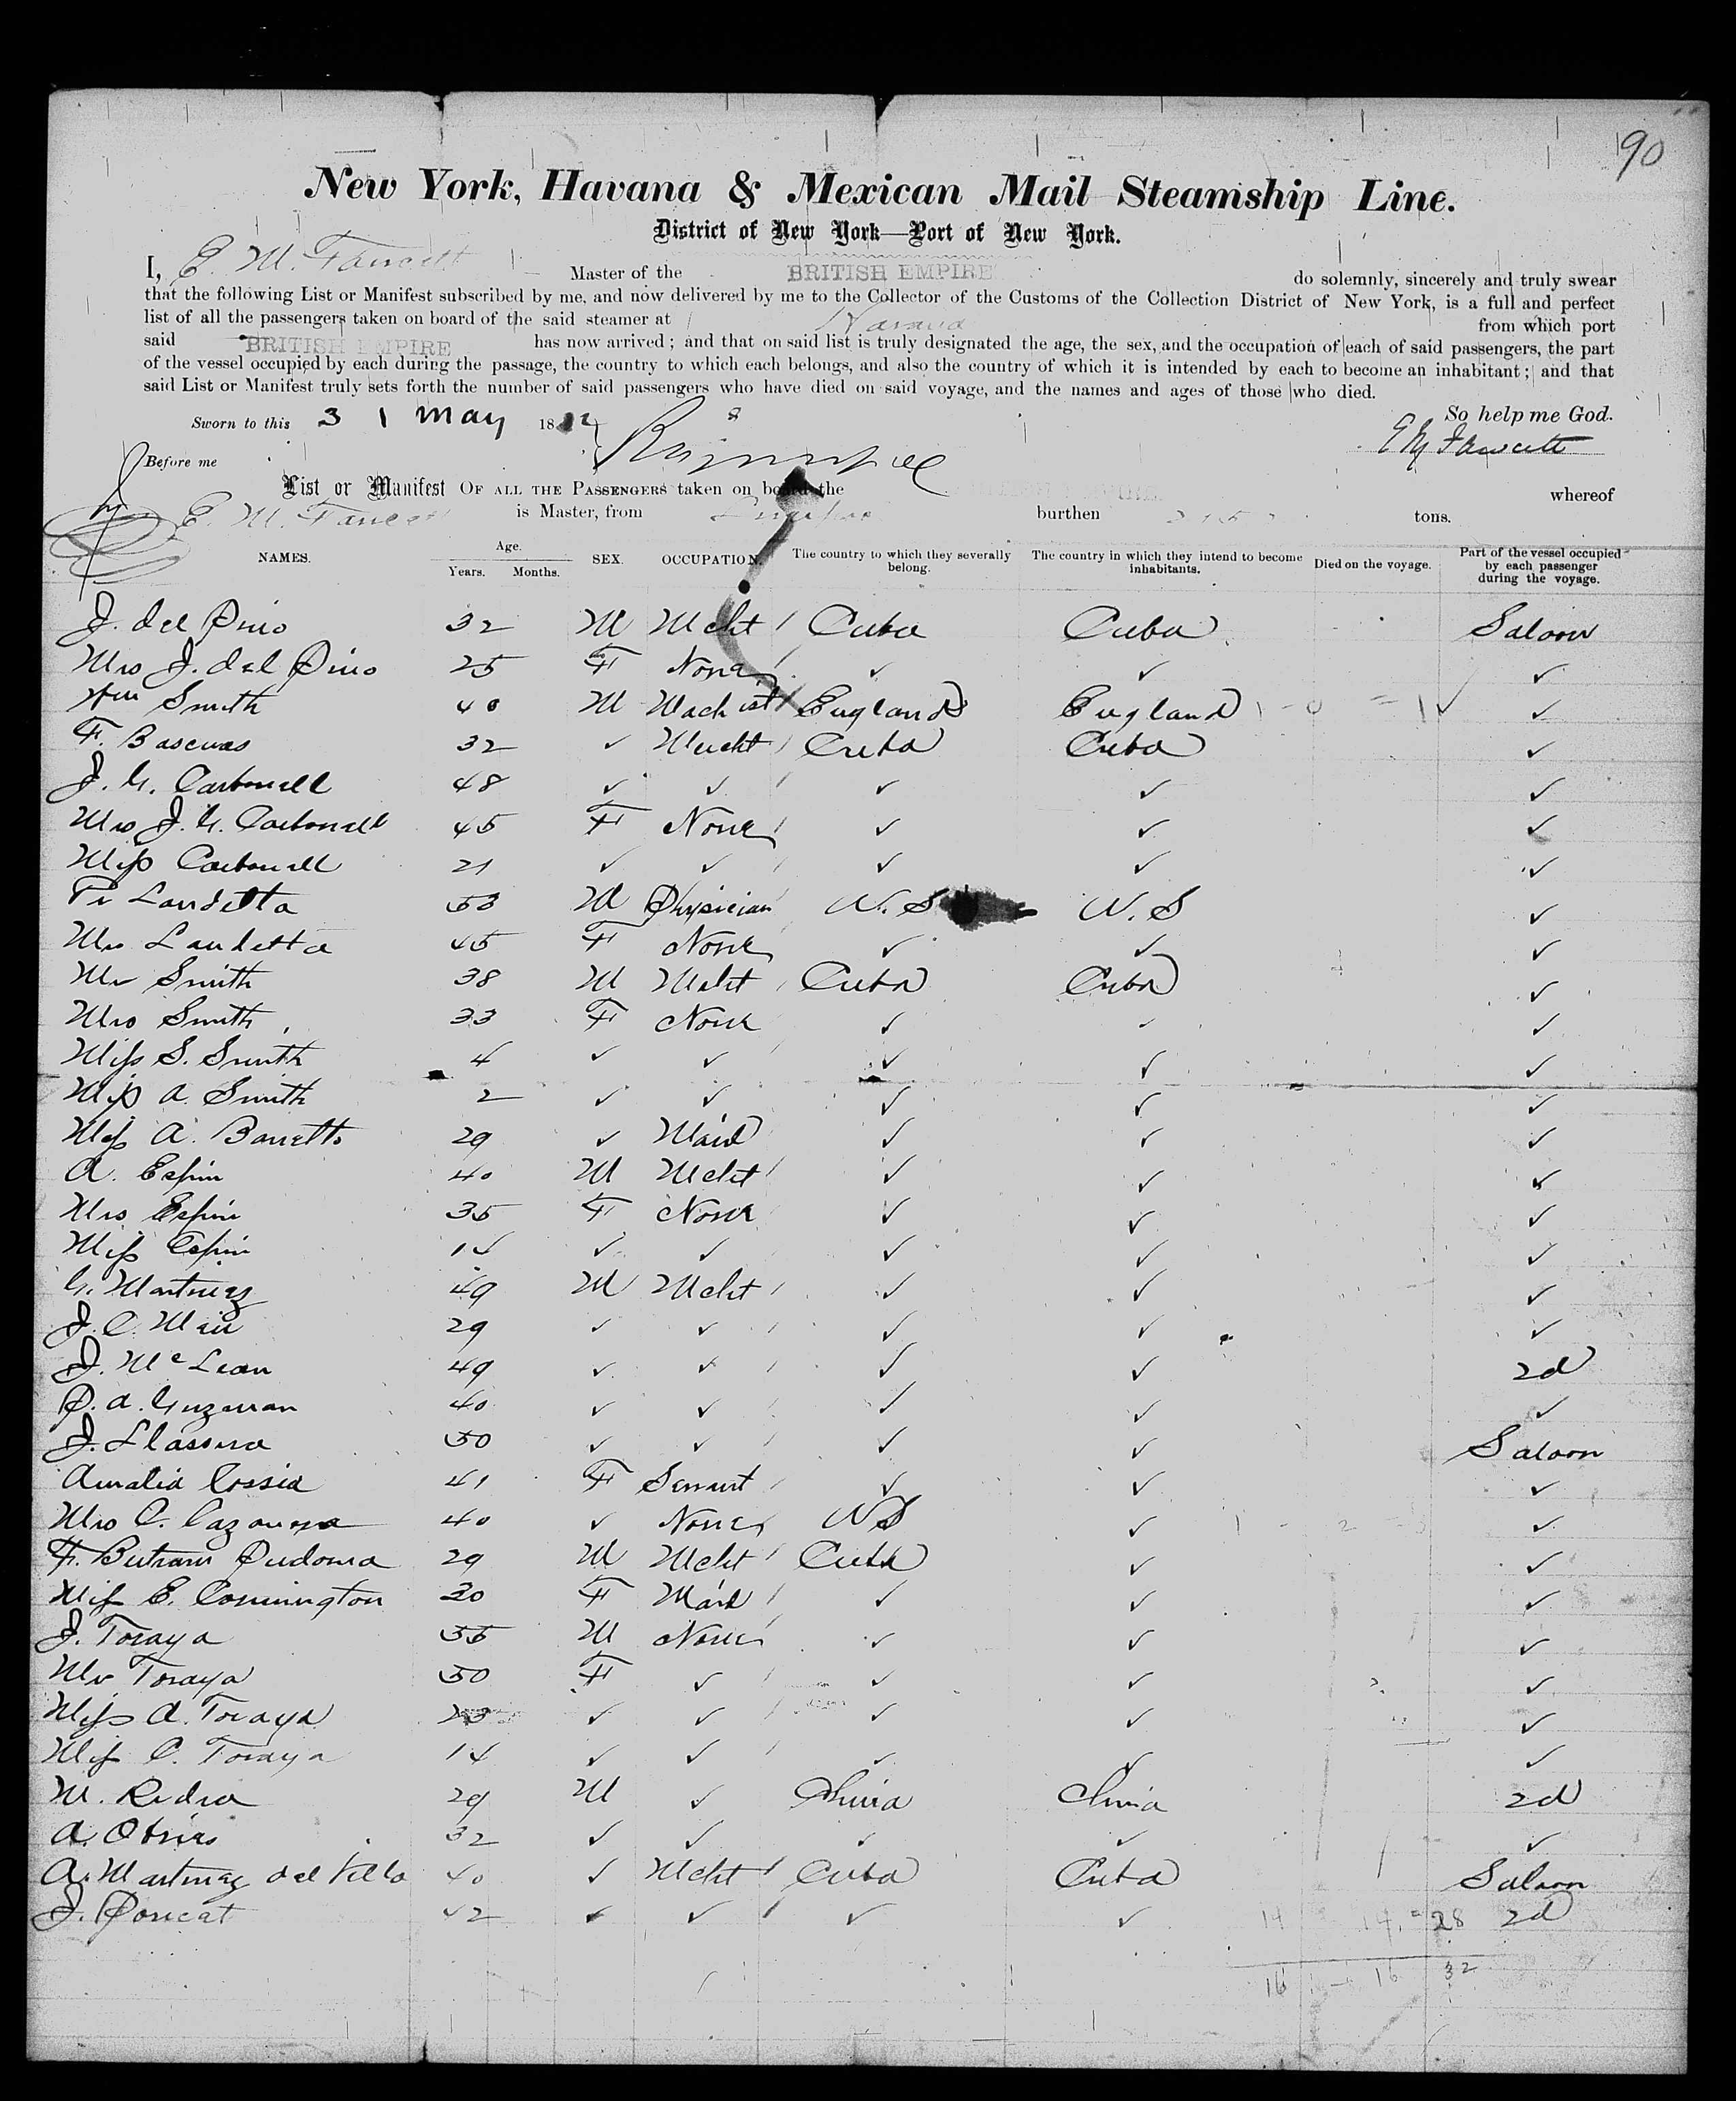 90
New York, Havana & Mexican Mail Steamship Line.
District of New York—Port of New York.
I, E. M. Fawcett Master of the BRITISH EMPIRE do solemnly, sincerely and truly swear
that the following List or Manifest subscribed by me, and now delivered by me to the Collector of the Customs of the Collection District of New York, is a full and perfect
list of all the passengers taken on board of the said steamer at Havana from which port
said BRITISH EMPIRE has now arrived; and that on said list is truly designated the age, the sex, and the occupation of each of said passengers, the part
of the vessel occupied by each during the passage, the country to which each belongs, and also the country of which it is intended by each to become an inhabitant; and that
said List or Manifest truly sets forth the number of said passengers who have died on said voyage, and the names and ages of those who died.
Sworn to this 31 May 1882 So help me God.
E M Fawcett
Before me
List or Manifest OF ALL THE PASSENGERS taken on board the whereof
E. M. Fawcett is Master, from burthen tons.
NAMES. Age. Years. Months. SEX. OCCUPATION. The country to which they severally belong. The country in which they intend to become inhabitants. Died on the voyage. Part of the vessel occupied by each passenger during the voyage.
J. del Pino 32 M Mcht Cuba Cuba Saloon
Mrs J. del Pino 25 F None ✓ ✓ ✓
Wm Smith 40 M Machist England England 1 - 0 = 1 ✓ ✓
F. Bascuas 32 ✓ Mercht Cuba Cuba ✓
J. G. Carbonell 48 ✓ ✓ ✓ ✓ ✓
Mrs J. G. Carbonell 45 F None ✓ ✓ ✓
Miss Carbonell 21 ✓ ✓ ✓ ✓ ✓
Landetta 53 M Physician U. S U. S ✓
Mrs Landetta 45 F None ✓ ✓ ✓
Mr Smith 38 M Mcht Cuba Cuba ✓
Mrs Smith 33 F None ✓ ✓ ✓
Miss S. Smith 4 ✓ ✓ ✓ ✓ ✓
Miss A. Smith 2 ✓ ✓ ✓ ✓ ✓
Miss A. Barretto 29 ✓ Maid ✓ ✓ ✓
A. Espin 40 M Mcht ✓ ✓ ✓
Mrs Espin 35 F None ✓ ✓ ✓
Miss Espin 14 ✓ ✓ ✓ ✓ ✓
G. Martinez 49 M Mcht ✓ ✓ ✓
J. C. 29 ✓ ✓ ✓ ✓ ✓
J. McLean 49 ✓ ✓ ✓ ✓ 2d
P. A. Guzman 40 ✓ ✓ ✓ ✓ ✓
J. Llassera 50 ✓ ✓ ✓ ✓ Saloon
Amalia Cossia 41 F Servant ✓ ✓ ✓
Mrs C. Cazanova 40 ✓ None U S ✓ 1 - 2 - 3 ✓
F. Butram 29 M Mcht Cuba ✓ ✓
Miss E. Connington 30 F Maid ✓ ✓ ✓
J. Toraya 55 M None ✓ ✓ ✓
Mrs Toraya 50 F ✓ ✓ ✓ ✓
Miss A. Toraya 23 ✓ ✓ ✓ ✓ ✓
Miss C. Toraya 14 ✓ ✓ ✓ ✓ ✓
M. 29 M ✓ China China 2d
A. 32 ✓ ✓ ✓ ✓ ✓
A. Martinez del Villa 40 ✓ Mcht Cuba Cuba Saloon
J. Poncat 42 ✓ ✓ ✓ ✓ 14 14 = 28 2d
16 - 16 32